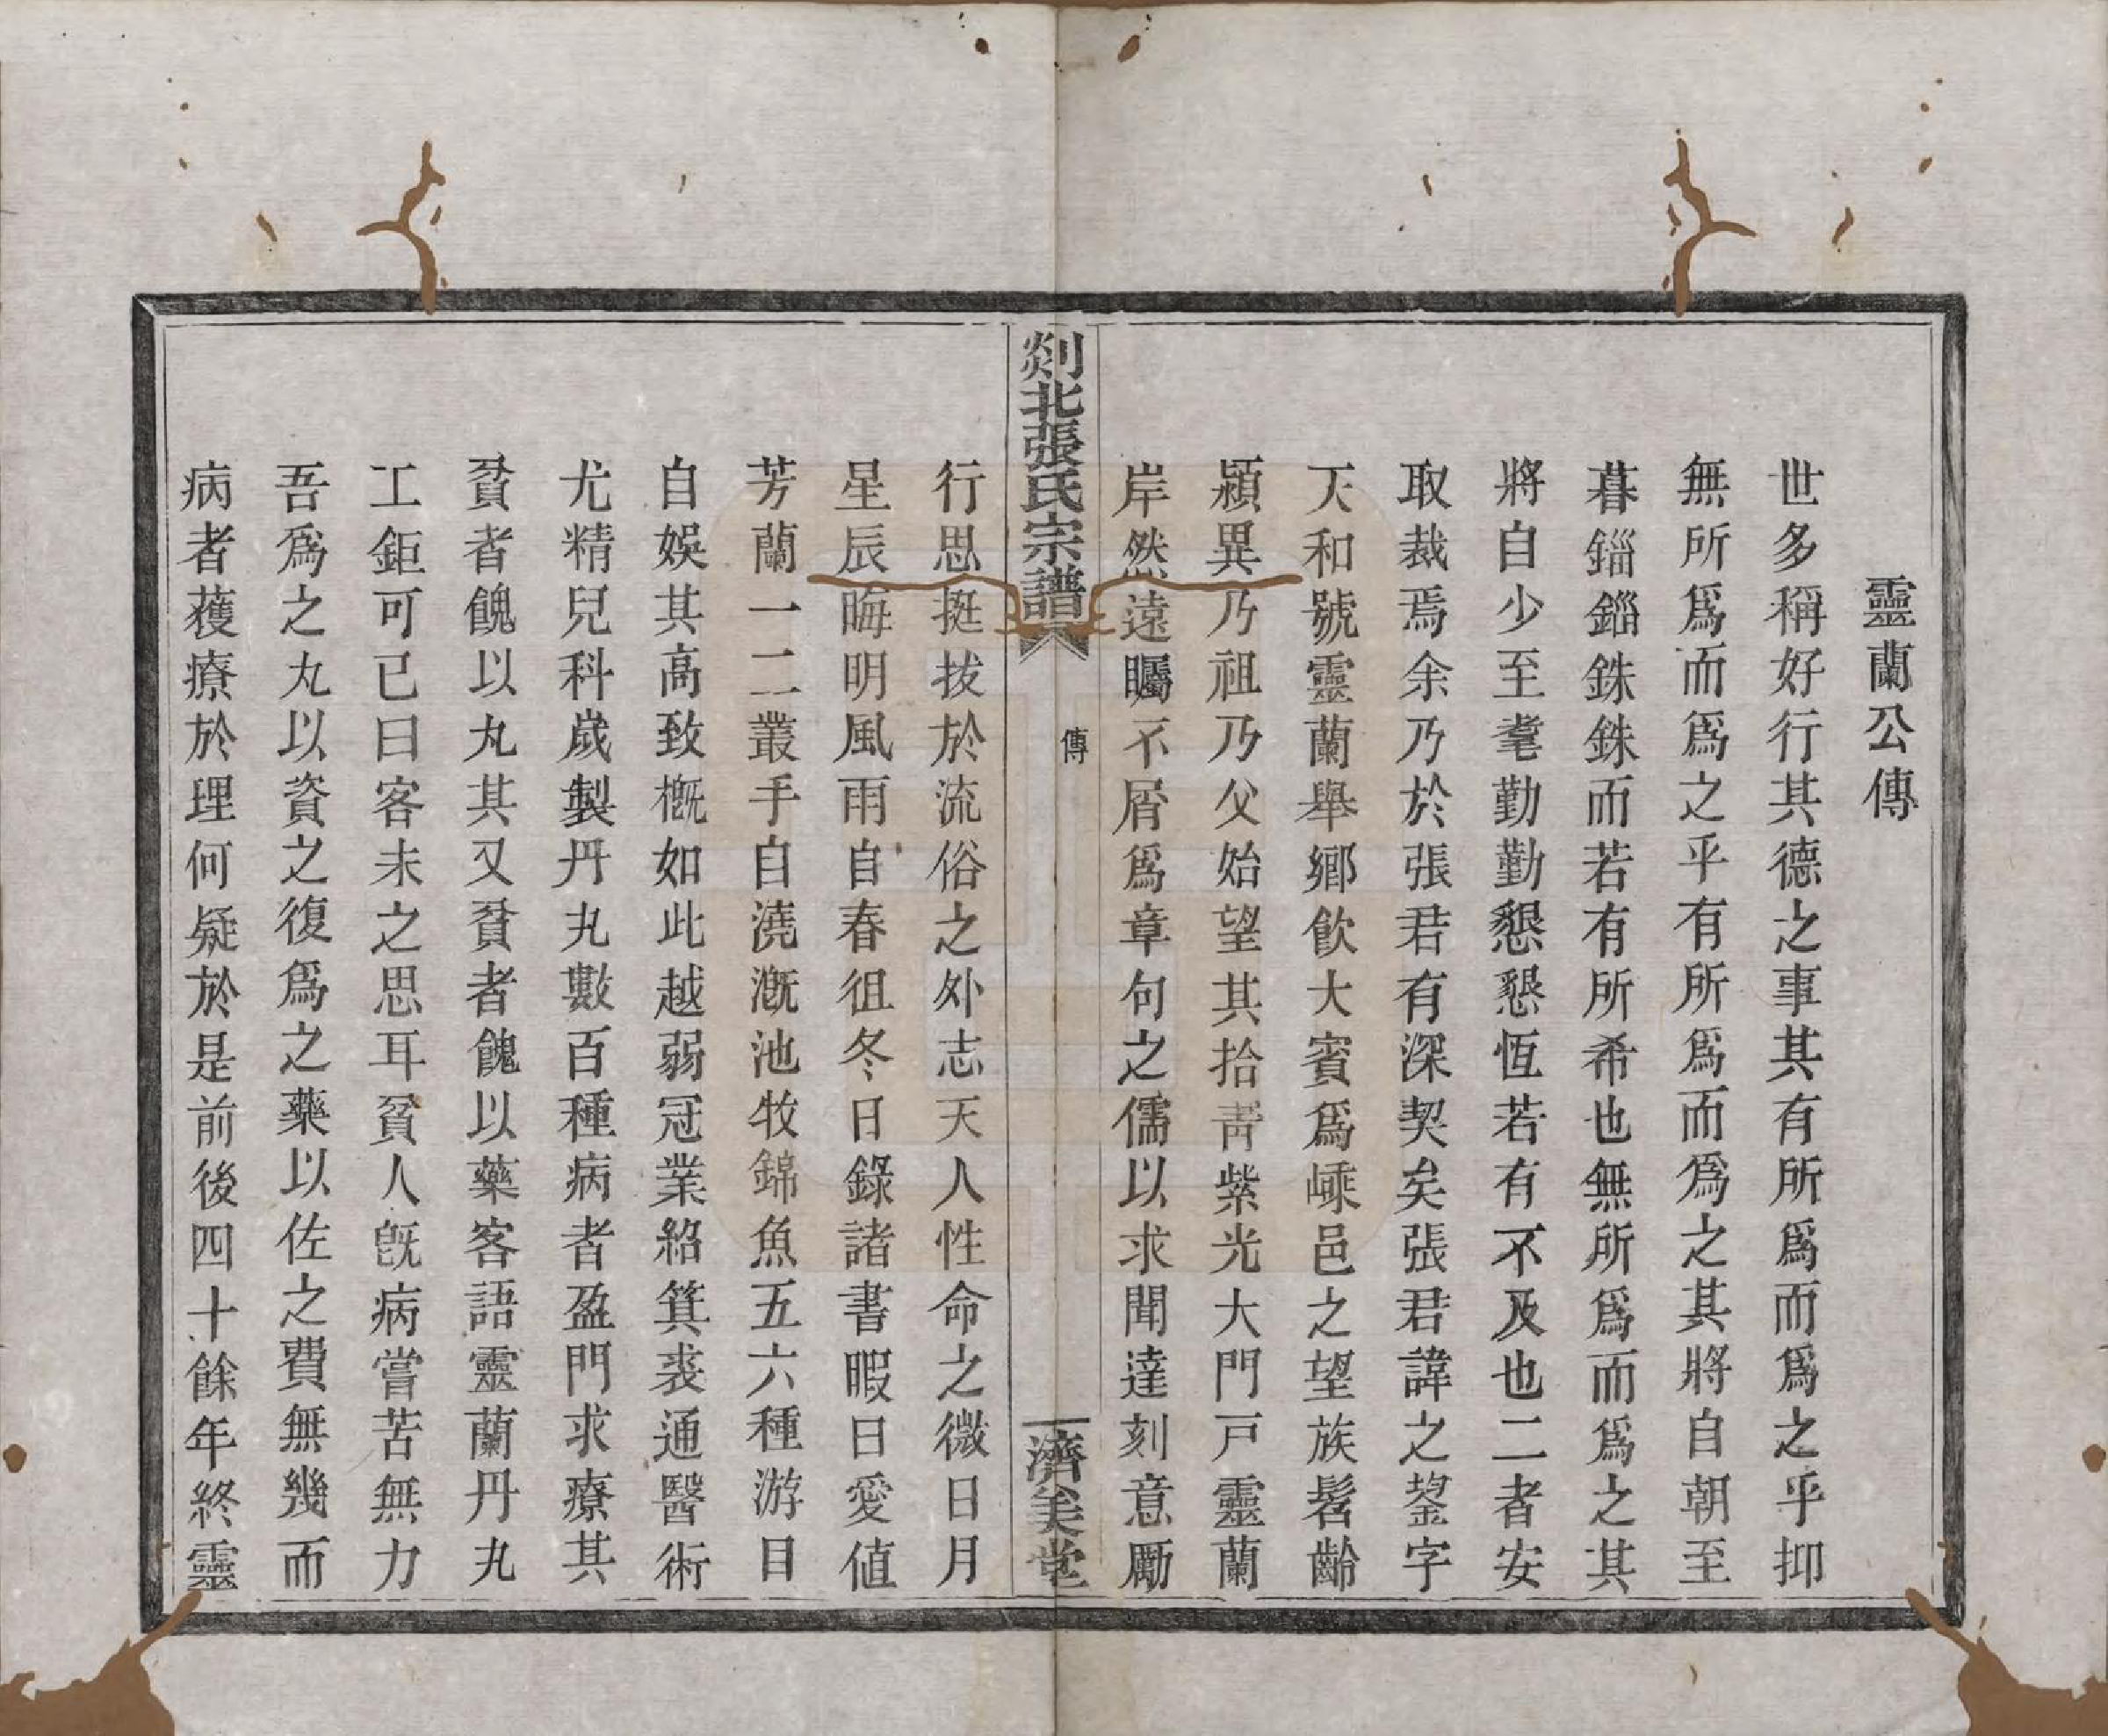 靈蘭公傳
世多稱好行其德之事其有所爲而爲之乎抑
無所爲而爲之乎有所爲而爲之其將自朝至
暮錙錙銖銖而若有所希也無所爲而爲之其
將自少至耄勤勤懇懇恆若有不及也二者安
取裁焉余乃於張君有深契矣張君諱之鋆字
天和號靈蘭舉鄉飲大賓爲嵊邑之望族髫齡
穎異乃祖乃父始望其拾靑紫光大門戸靈蘭
岸然遠矚不屑爲章句之儒以求聞達刻意勵
剡北張氏宗譜
傳
濟美堂
行思挺拔於流俗之外志天人性命之微日月
星辰晦明風雨自春徂冬日錄諸書暇日愛値
芳蘭一二叢手自澆漑池牧錦魚五六種游目
自娛其高致槪如此越弱冠業紹箕裘通醫術
尤精兒科歲製丹丸數百種病者盈門求療其
貧者餽以丸其又貧者餽以藥客語靈蘭丹丸
工鉅可已曰客未之思耳貧人旣病嘗苦無力
吾爲之丸以資之復爲之藥以佐之費無幾而
病者獲療於理何疑於是前後四十餘年終靈